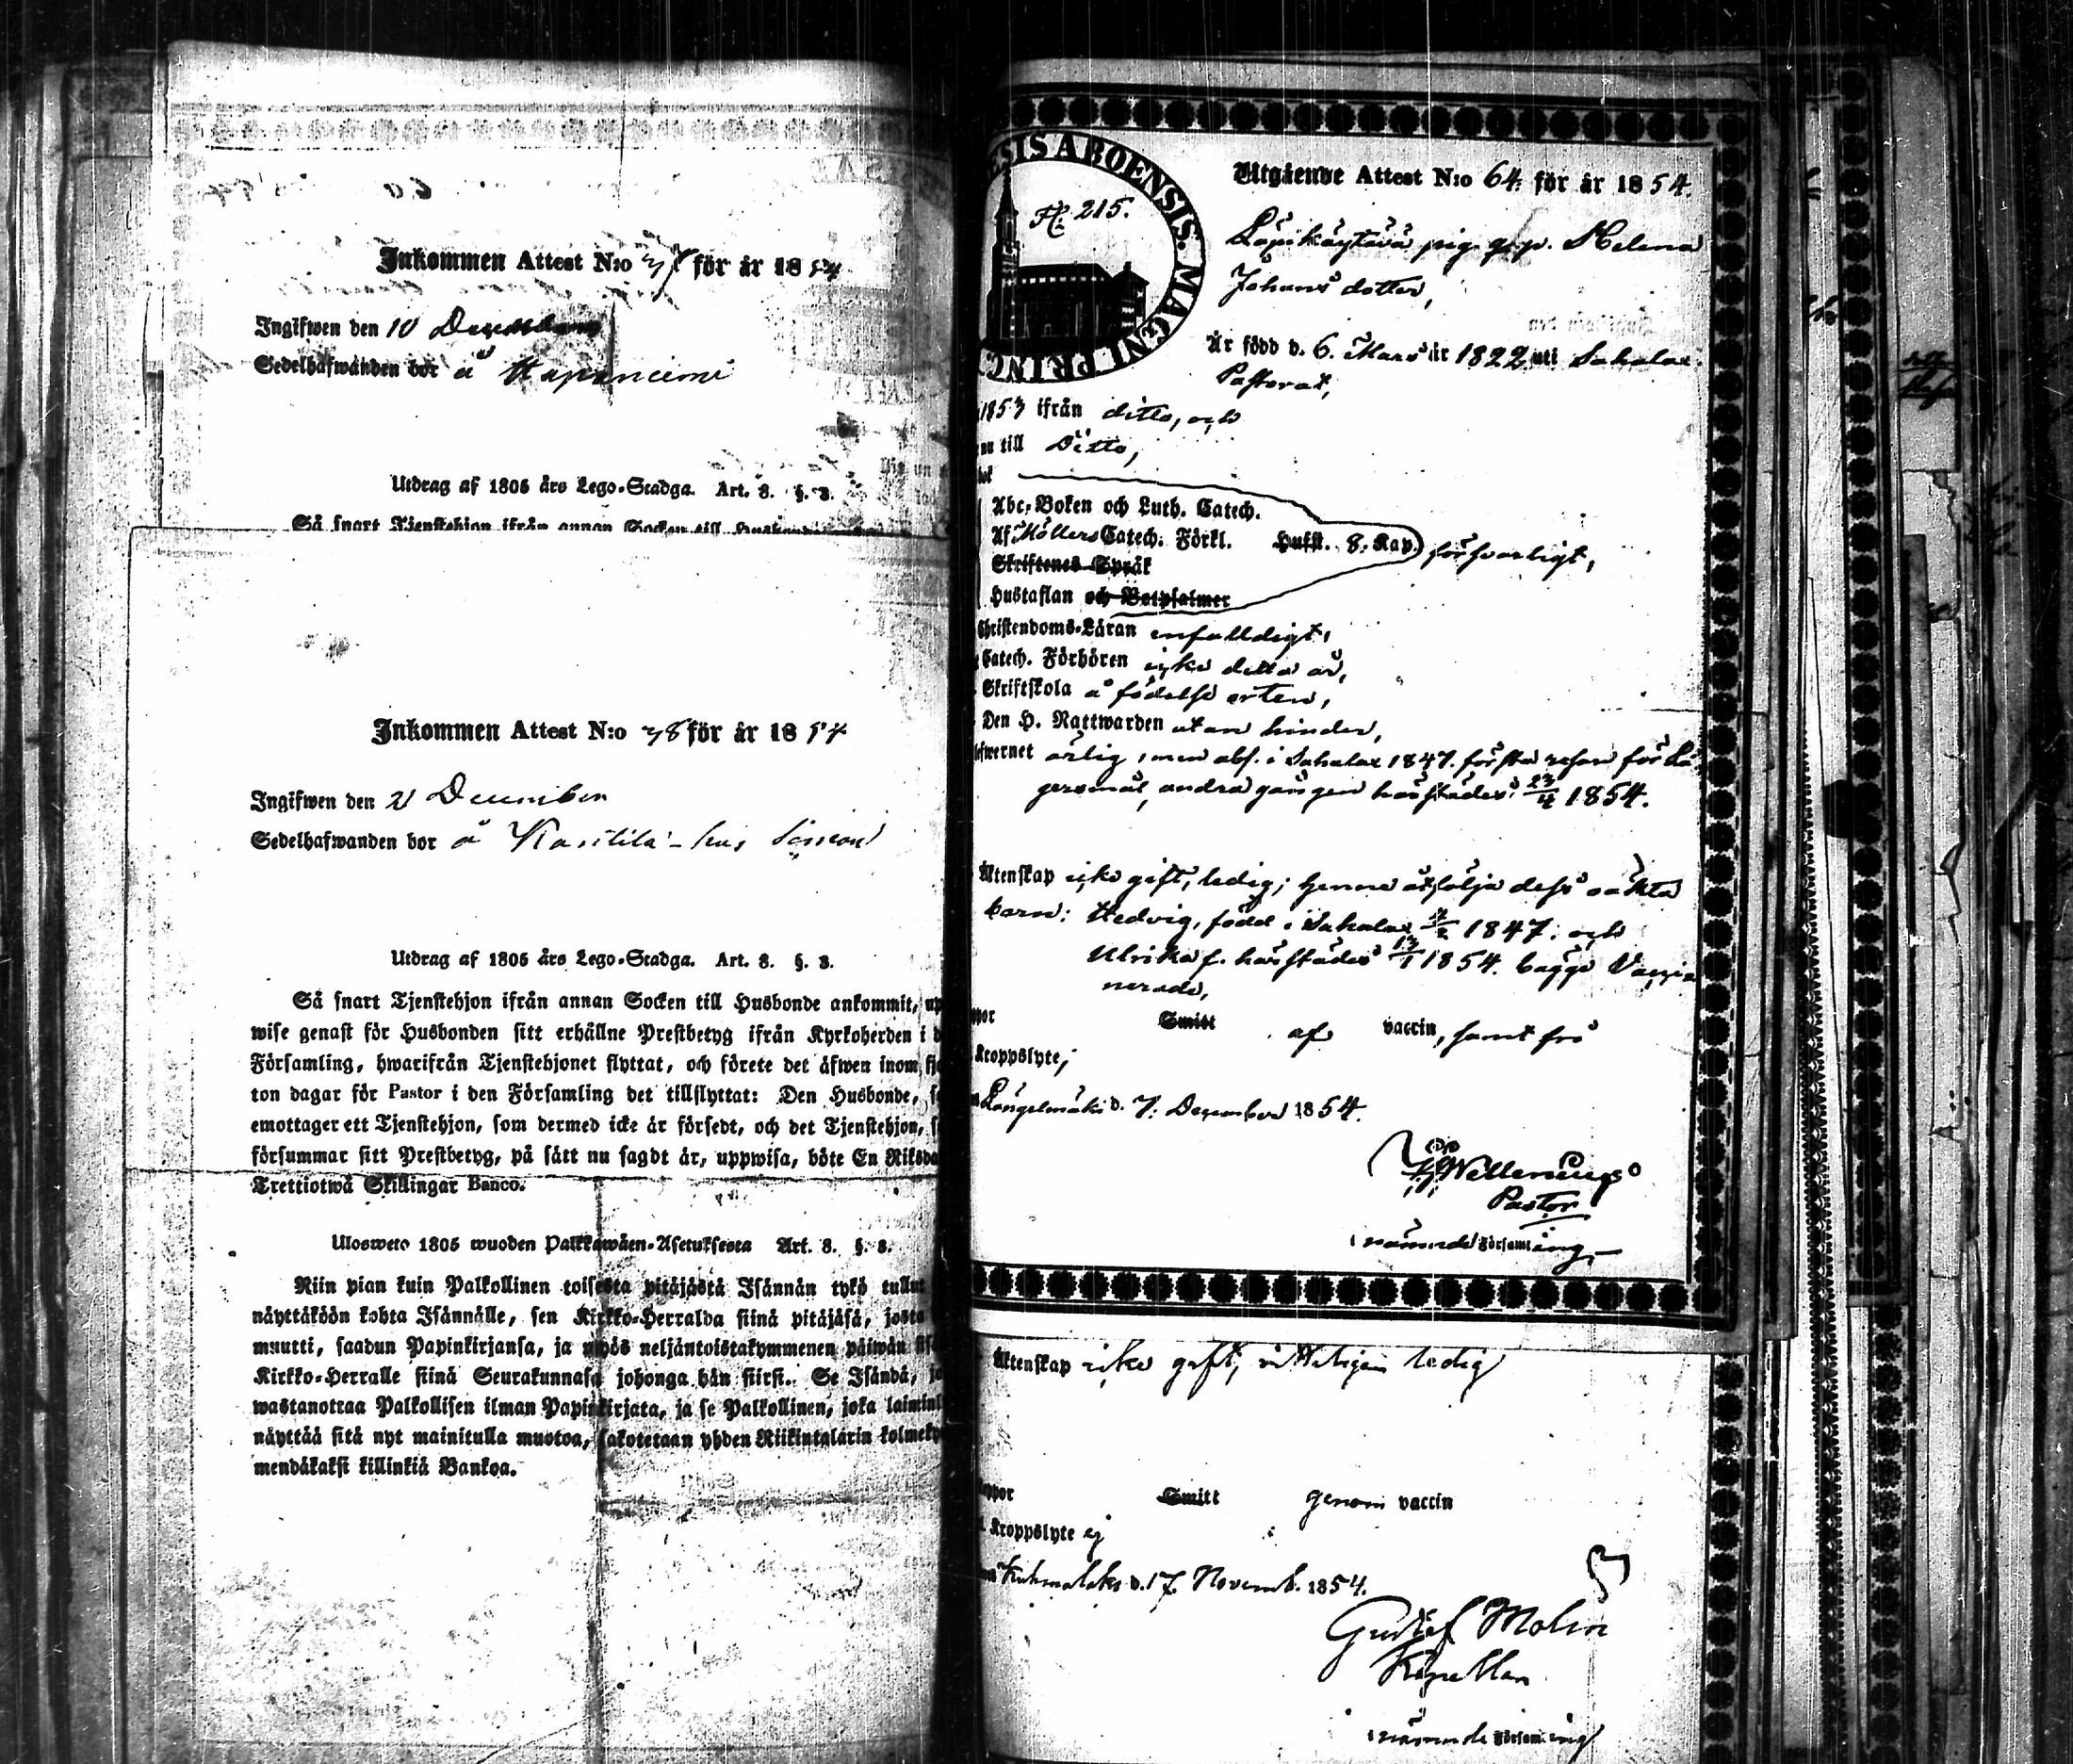 Inkommen Attest N:o för år 1854
Ingifwen den 10 December
Sedelhafwanden bor å Haponiemi
Utdrag af 1805 års Lego-Stadga. Art. 8. §. 3.
Så snart Tjenstehjon ifrån annan Socken till Husbonde
Inkommen Attest N:o 38 för år 1854
Ingifwen den 21 December
Sedelhafwanden bor å
Utdrag af 1805 års Lego-Stadga. Art. 8. §. 3.
Så snart Tjenstehjon ifrån annan Socken till Husbonde ankommit, up
wise genast för Husbonden sitt erhållne Prestbetyg ifrån Kyrkoherden i d
Församling, hwarifrån Tjenstehjonet flyttat, och förete det äfwen inom fjo
ton dagar för Pastor i den Församling det tillflyttat: Den Husbonde, s
emottager ett Tjenstehjon, som dermed icke är försedt, och det Tjenstehjon, s
försummar sitt Prestbetyg, på sätt nu sagdt är, uppwisa, böte En Riksda
Trettiotwå Skillingar Banco.
Ulosweto 1805 wuoden Palkkawäen-Asetuksesta Art. 8. §. 3.
Niin pian kuin Palkollinen toisesta pitäjästä Isännän tykö tullut
näyttäköön kohta Isännälle, sen Kirkko-Herralda siinä pitäjäsä, josta
muutti, saadun Papinkirjansa, ja myös neljäntoistakymmenen päiwän sis
Kirkko-Herralle siinä Seurakunnasa johonga hän siirsi. Se Isändä, jo
wastanottaa Palkollisen ilman Papinkirjata, ja se Palkollinen, joka laimin
näyttää sitä nyt mainitulla muotoa, sakotetaan yhden Riikintalarin kolmeky
mendäkaksi killinkiä Bankoa.
ESIS ABOENSIS. MAGNI PRINC
H. 215.
Utgående Attest N:o 64. för år 1854.
pig. Helena
Johans dotter,
Är född d. 6. Mars år 1822 uti Sahalax
Pastorat,
1853 ifrån ditto, och
nu till Ditto,
bok
Abc-Boken och Luth. Catech.
Af Möllers Catech. Förkl. Husst. 8. Kap. försvarligt,
Skriftenes Språk
Hustaflan och Botpsalmer
Christendoms-Läran enfalldigt,
Catech. Förhören icke detta år,
Skriftskola å födelse orten,
Den H. Nattwarden utan hinder,
efwernet ärlig, men abs. i Sahalax 1847. första resan för Lä
gersmål, andra gången härstädes 23/4 1854.
Äktenskap icke gift, ledig; henne åtfölja dess oäkta
barn: Hedvig, född i Sahalax 1847. och
Ulrika f. härstädes 13/1 1854. bägge Vacci
nerade,
ppor Smitt af vaccin, samt fri
Kroppslyte,
Längelmäki d. 7. December 1854.
Pastor
i nämnde Församling
Äktenskap icke gift, ledig
ppor Smitt genom vaccin
Kroppslyte ej
Kuhmalaks d. 17 Novemb. 1854.
Gustaf Molin
Kapellan
i nämnde Församling